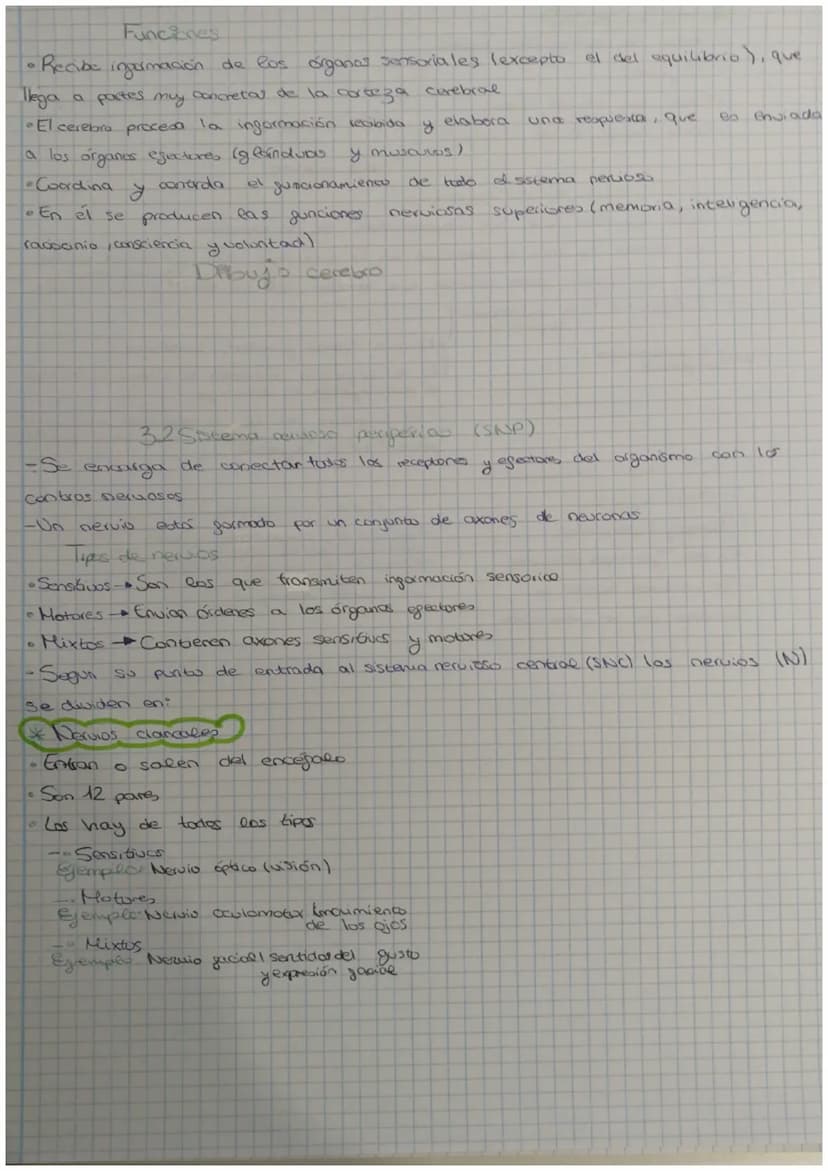 Funciones
• Recibe información de los órganos sensoriales (excepto el del equilibrio), que
llega a partes muy concretas de la corteza cerebral
• El cerebro procesa la información recibida y elabora una respuesta, que es enviada
a los órganos efectores (glándulas y músculos)
• Coordina y controla el funcionamiento de todo el sistema nervioso
• En él se producen las funciones nerviosas superiores (memoria, inteligencia,
raciocinio, consciencia y voluntad)
Dibujo cerebro
3.2 Sistema nervioso periférico (SNP)
- Se encarga de conectar todos los receptores y efectores del organismo con los
centros nerviosos
- Un nervio está formado por un conjunto de axones de neuronas
Tipos de nervios
• Sensitivos → Son los que transmiten información sensorial
• Motores → Envian órdenes a los órganos efectores
• Mixtos → Contienen axones sensitivos y motores
- Segun su punto de entrada al sistema nervioso central (SNC) los nervios (N)
se dividen en:
* Nervios craneales
• Entran o salen del encefalo
• Son 12 pares
• Los hay de todos los tipos
-- Sensitivos
Ejemplo: Nervio óptico (visión)
-- Motores
Ejemplo: Nervio oculomotor (movimiento
de los ojos
-- Mixtos
Ejemplo: Nervio facial (sentidos del gusto
y expresión facial